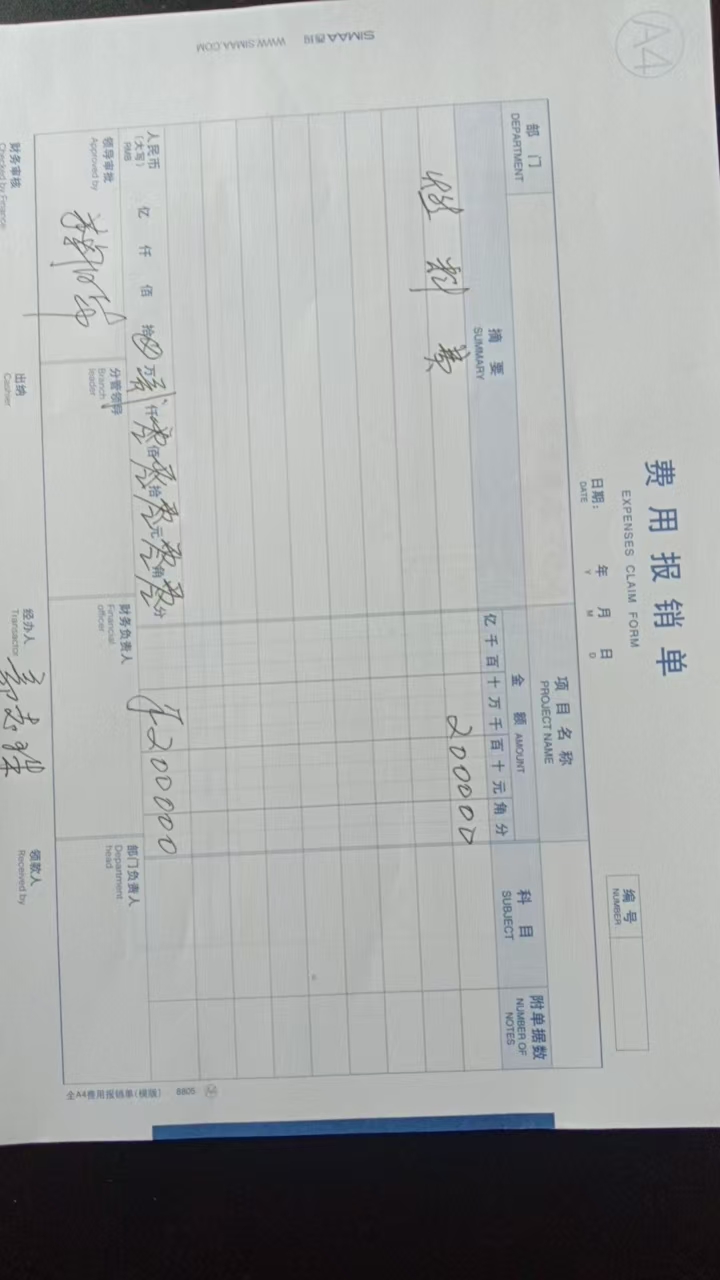 A4
SIMAA 西玛 WWW.SIMAA.COM
费用报销单
EXPENSES CLAIM FORM
日期: 年 月 日
DATE Y M D
编号
NUMBER
部门
DEPARTMENT
项目名称
PROJECT NAME
摘要
SUMMARY
金额 AMOUNT
亿千百十万千百十元角分
科目
SUBJECT
附单据数
NUMBER OF
NOTES
燃料费 200000
人民币
(大写)
RMB
亿 仟 佰 拾 ⊗ 万 贰 仟 零 佰 零 拾 零 元 零 角 零 分
¥200000
领导审批
Approved by
分管领导
Branch
leader
财务负责人
Financial
officer
部门负责人
Department
head
财务审核
Checked by Finance
出纳
Cashier
经办人
Transactor
领款人
Received by
全A4费用报销单(横版) 8805